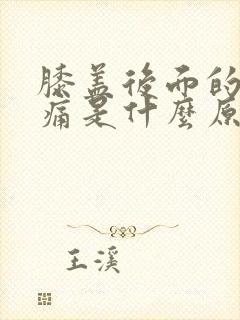 膝盖後而的
痛是什麼原
王溪